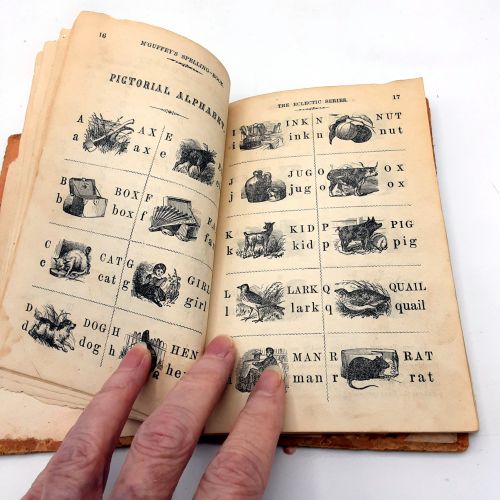 16
M'GUFFEY'S SPELLING-BOOK
PICTORIAL ALPHABET
A AXE
a axe
B BOX
b box
C CAT
c cat
D DOG
d dog
E
e
F
f
G GIRL
g girl
H HEN
h
THE ECLECTIC SERIES.
17
I INK
i ink
J JUG
j jug
K KID
k kid
L LARK
l lark
MAN
man
N NUT
n nut
O OX
o ox
P PIG
p pig
Q QUAIL
q quail
R RAT
r rat